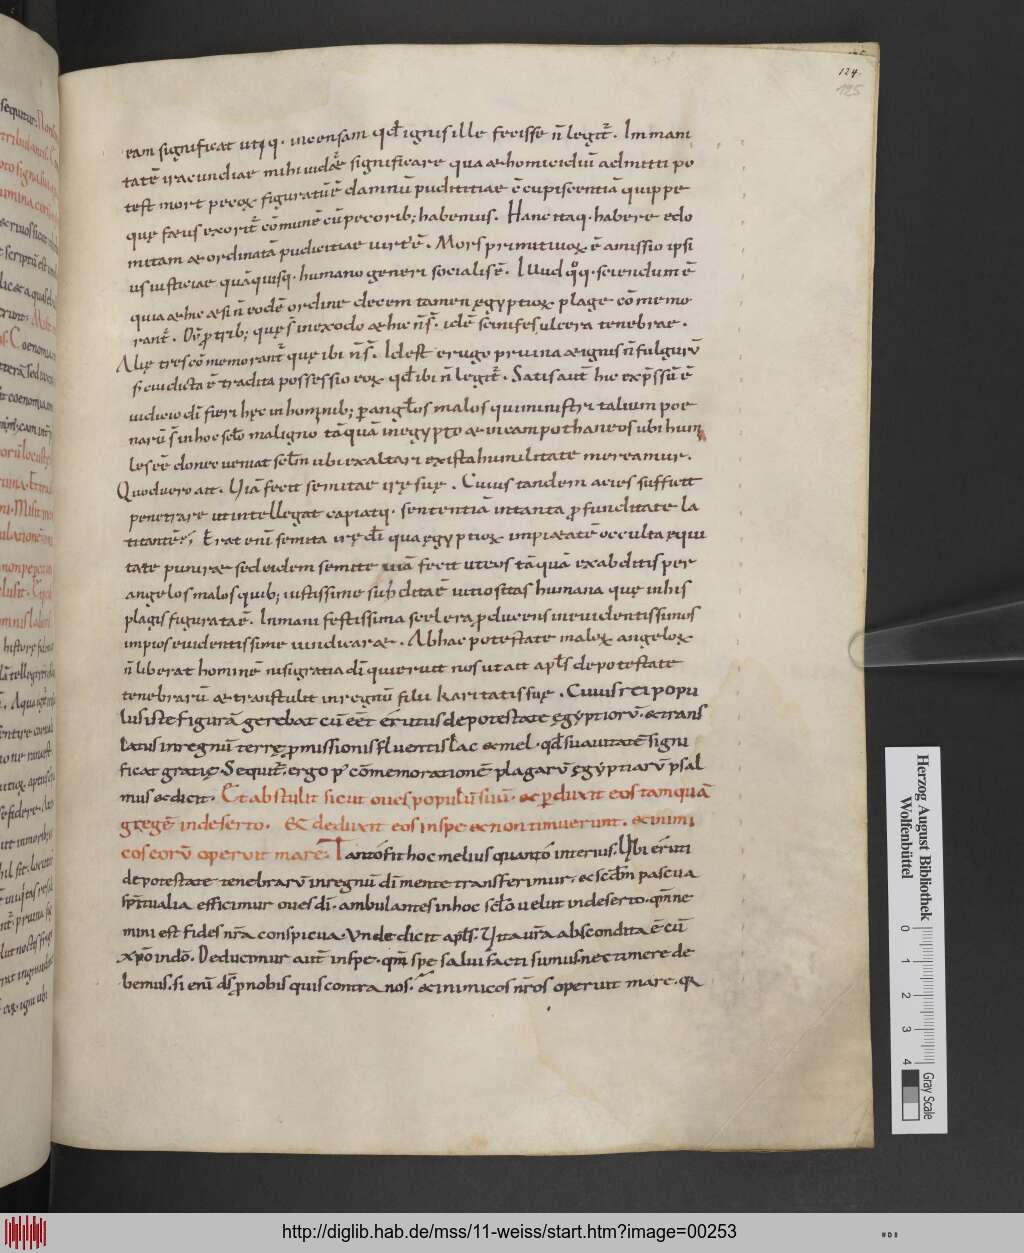 124.
125
eam significat utiq · incensam qđ ignis ille fecisse ñ legit̃ · Inmani
tatē iracundiae mihi uidet̃ significare qua & homicidiũ admitti po
test mort pecoꝝ figuratũ ē damnũ pudicitiae · c̄cupiscentiã quippe
quę fetus exorit̃ cõmunē cũ pecorib; habemus. Hanc itaq · habere edo
mitam & ordinatã pudicitiae uirt' ē. Mors primitiuoꝝ ē amissio ipsi
us iusticiae quã quisq · humano generi socialis ē. Illud qq · sciendum ē
quia & hic & si ñ eodē ordine decem tamen ęgyptioꝝ plage cõmemo
rant̃. Dē ꝓ trib; quę s̃ in exodo & hic ñ s̃ · idē scinifes ulcera tenebrae ·
Alię tres cõmemorant̃ quę ibi ñ s̃. Idest erugo pruina & ignis ñ fulgurũ
s; cui dicta ē tradita possessio eoꝝ qđ ibi ñ legit̃. Satis aut̃ hic exp̃ssũ ē
iudicio dī fieri hęc in hominib; ꝑ angl̃os malos qui ministri talium poe
narũ s̃ in hoc scl̃o maligno tãquã in egypto & in campo thaneos ubi humi
les eē donec ueniat scl̃m ubi exaltari ex ista humilitate mereamur.
Quod uero ait. Uiã fecit semitae irę suę. Cuius tandem acies sufficit
penetrare ut intellegat capiatq · sententiã in tanta ꝓfunditate la
titantē; Erat enī semita irę dī qua ęgyptioꝝ impietatē occulta ęqui
tate punir& sed eidem semite uiã fecit ut eos tãquã ex abditis per
angelos malos quib; iustissime subditaē uitiositas humana que in his
plagis figurata ē. Inmani festissima scelera ꝓducens in euidentissimos
impios euidentissime uindicar&. Ab hac potestate maloꝝ angeloꝝ
ñ liberat hominē nisi gratia dī qui eruit nos ut ait apl̃s de potestate
tenebrarũ & transtulit in regnũ filii karitatis suę. Cuius rei popu
lus iste figurã gerebat cũ eēt érutus de potestate ęgyptiorũ · & trans
latus in regnũ terrę ꝓmissionis fluentis lac & mel · qđ suauitatē signi
ficat gratię · Sequit̃ ergo p' cõmemorationē plagarũ ęgyptiarũ psal
mus & dicit · Et abstulit sicut oues populũ suũ · & ꝑduxit eos tamquã
gregē in deserto. Et deduxit eos in spe & non timuerunt. & inimi
cos eorũ operuit mare. Tanto fit hoc melius quanto interius. Ubi eruti
de potestate tenebrarũ in regnũ dī mente transferimur · & scdm̃ pascua
sp̃italia efficimur oues dī · ambulantes in hoc scl̃o uelut in deserto · qm̃ ne
mini est fides nr̃a conspicua · Unde dicit apl̃s. Uita ur̃a abscondita ē cũ
xp̃o in dõ. Deducimur aut̃ in spe · qm̃ spe salui facti sumus · nec timere de
bemus. si enĩ ds̃ ꝓ nobis quis contra nos. & inimicos nr̃os operuit mare · qa
Herzog August Bibliothek
Wolfenbüttel
0
1
2
3
4
Gray Scale
http://diglib.hab.de/mss/11-weiss/start.htm?image=00253